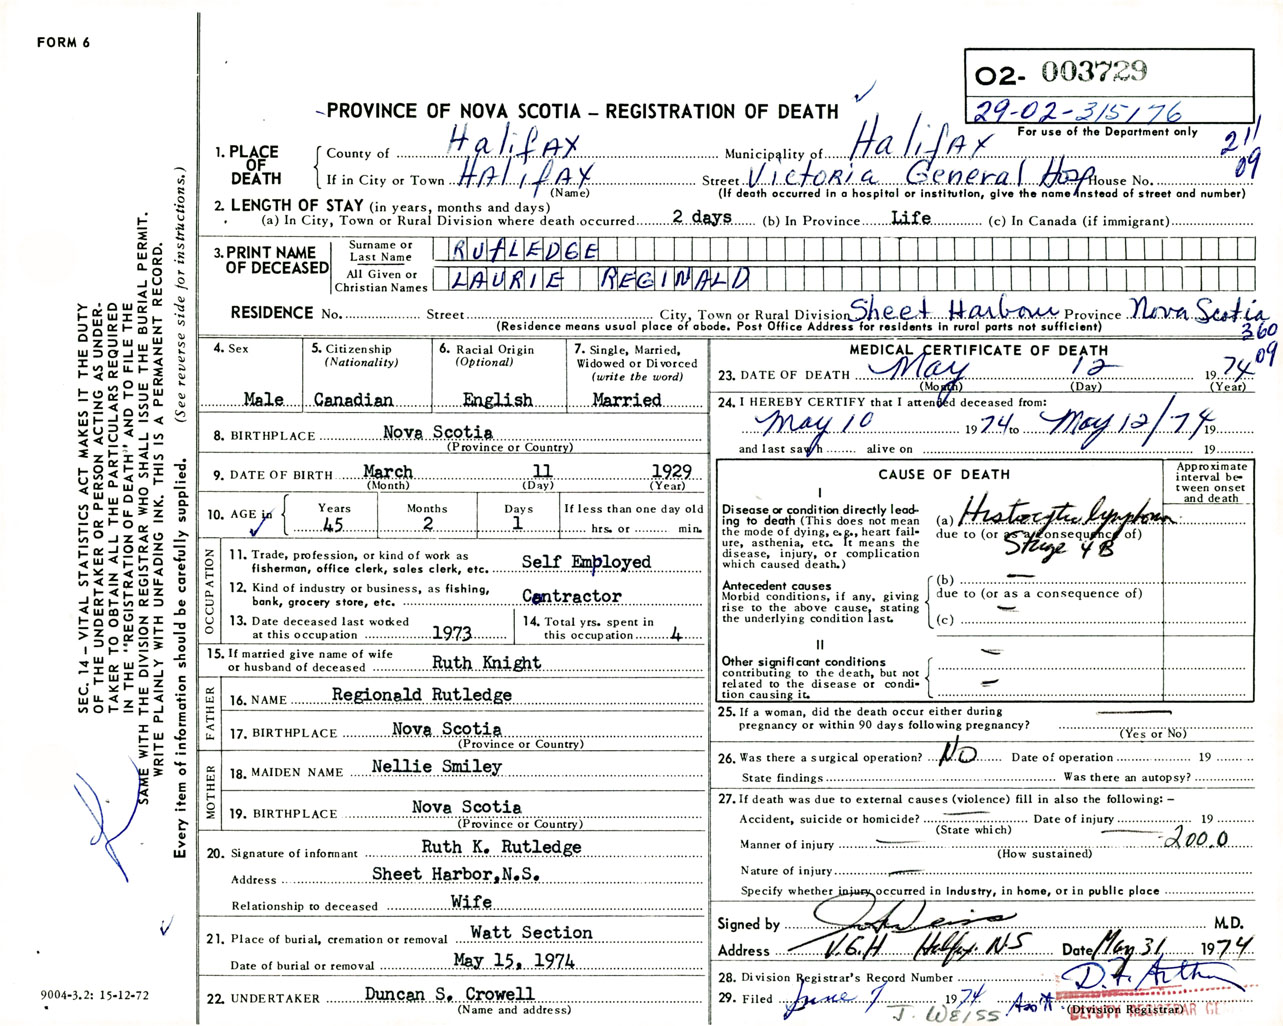 FORM 6
O2- 003729
29-02-315176
For use of the Department only
21'
09
PROVINCE OF NOVA SCOTIA – REGISTRATION OF DEATH
1. PLACE OF DEATH
County of Halifax Municipality of Halifax
If in City or Town Halifax Street Victoria General Hosp House No.
(Name) (If death occurred in a hospital or institution, give the name instead of street and number)
2. LENGTH OF STAY (in years, months and days)
(a) In City, Town or Rural Division where death occurred 2 days (b) In Province Life (c) In Canada (if immigrant)
3. PRINT NAME OF DECEASED
Surname or Last Name RUTLEDGE
All Given or Christian Names LAURIE REGINALD
RESIDENCE No. Street City, Town or Rural Division Sheet Harbour Province Nova Scotia
(Residence means usual place of abode. Post Office Address for residents in rural parts not sufficient)
360
09
4. Sex
Male
5. Citizenship
(Nationality)
Canadian
6. Racial Origin
(Optional)
English
7. Single, Married,
Widowed or Divorced
(write the word)
Married
8. BIRTHPLACE Nova Scotia
(Province or Country)
9. DATE OF BIRTH March 11 1929
(Month) (Day) (Year)
10. AGE in
Years Months Days If less than one day old
45 2 1 hrs. or min.
OCCUPATION
11. Trade, profession, or kind of work as
fisherman, office clerk, sales clerk, etc. Self Employed
12. Kind of industry or business, as fishing,
bank, grocery store, etc. Contractor
13. Date deceased last worked
at this occupation 1973
14. Total yrs. spent in
this occupation 4
15. If married give name of wife
or husband of deceased Ruth Knight
FATHER
16. NAME Regionald Rutledge
17. BIRTHPLACE Nova Scotia
(Province or Country)
MOTHER
18. MAIDEN NAME Nellie Smiley
19. BIRTHPLACE Nova Scotia
(Province or Country)
20. Signature of informant Ruth K. Rutledge
Address Sheet Harbor,N.S.
Relationship to deceased Wife
21. Place of burial, cremation or removal Watt Section
Date of burial or removal May 15, 1974
22. UNDERTAKER Duncan S. Crowell
(Name and address)
MEDICAL CERTIFICATE OF DEATH
23. DATE OF DEATH May 12 1974
(Month) (Day) (Year)
24. I HEREBY CERTIFY that I attended deceased from:
May 10 1974 to May 12/74 19
and last saw h alive on 19
CAUSE OF DEATH
Approximate
interval be-
tween onset
and death
I
Disease or condition directly lead-
ing to death (This does not mean
the mode of dying, e.g., heart fail-
ure, asthenia, etc. It means the
disease, injury, or complication
which caused death.)
(a) Histocytic lymphoma
due to (or as a consequence of)
Stage 4 B
Antecedent causes
Morbid conditions, if any, giving
rise to the above cause, stating
the underlying condition last.
(b) —
due to (or as a consequence of)
(c) —
II
Other significant conditions
contributing to the death, but not
related to the disease or condi-
tion causing it.
25. If a woman, did the death occur either during
pregnancy or within 90 days following pregnancy?
(Yes or No)
26. Was there a surgical operation? NO Date of operation 19
State findings Was there an autopsy?
27. If death was due to external causes (violence) fill in also the following: –
Accident, suicide or homicide? Date of injury 19
(State which)
Manner of injury 200.0
(How sustained)
Nature of injury
Specify whether injury occurred in Industry, in home, or in public place
Signed by M.D.
Address V.G.H Halifax N.S Date May 31 1974
28. Division Registrar's Record Number
29. Filed June 7 1974
(Division Registrar)
DEPUTY REGISTRAR GE
J. WEISS
SEC. 14 – VITAL STATISTICS ACT MAKES IT THE DUTY
OF THE UNDERTAKER OR PERSON ACTING AS UNDER-
TAKER TO OBTAIN ALL THE PARTICULARS REQUIRED
IN THE "REGISTRATION OF DEATH" AND TO FILE THE
SAME WITH THE DIVISION REGISTRAR WHO SHALL ISSUE THE BURIAL PERMIT.
WRITE PLAINLY WITH UNFADING INK. THIS IS A PERMANENT RECORD.
Every item of information should be carefully supplied. (See reverse side for instructions.)
9004-3.2: 15-12-72